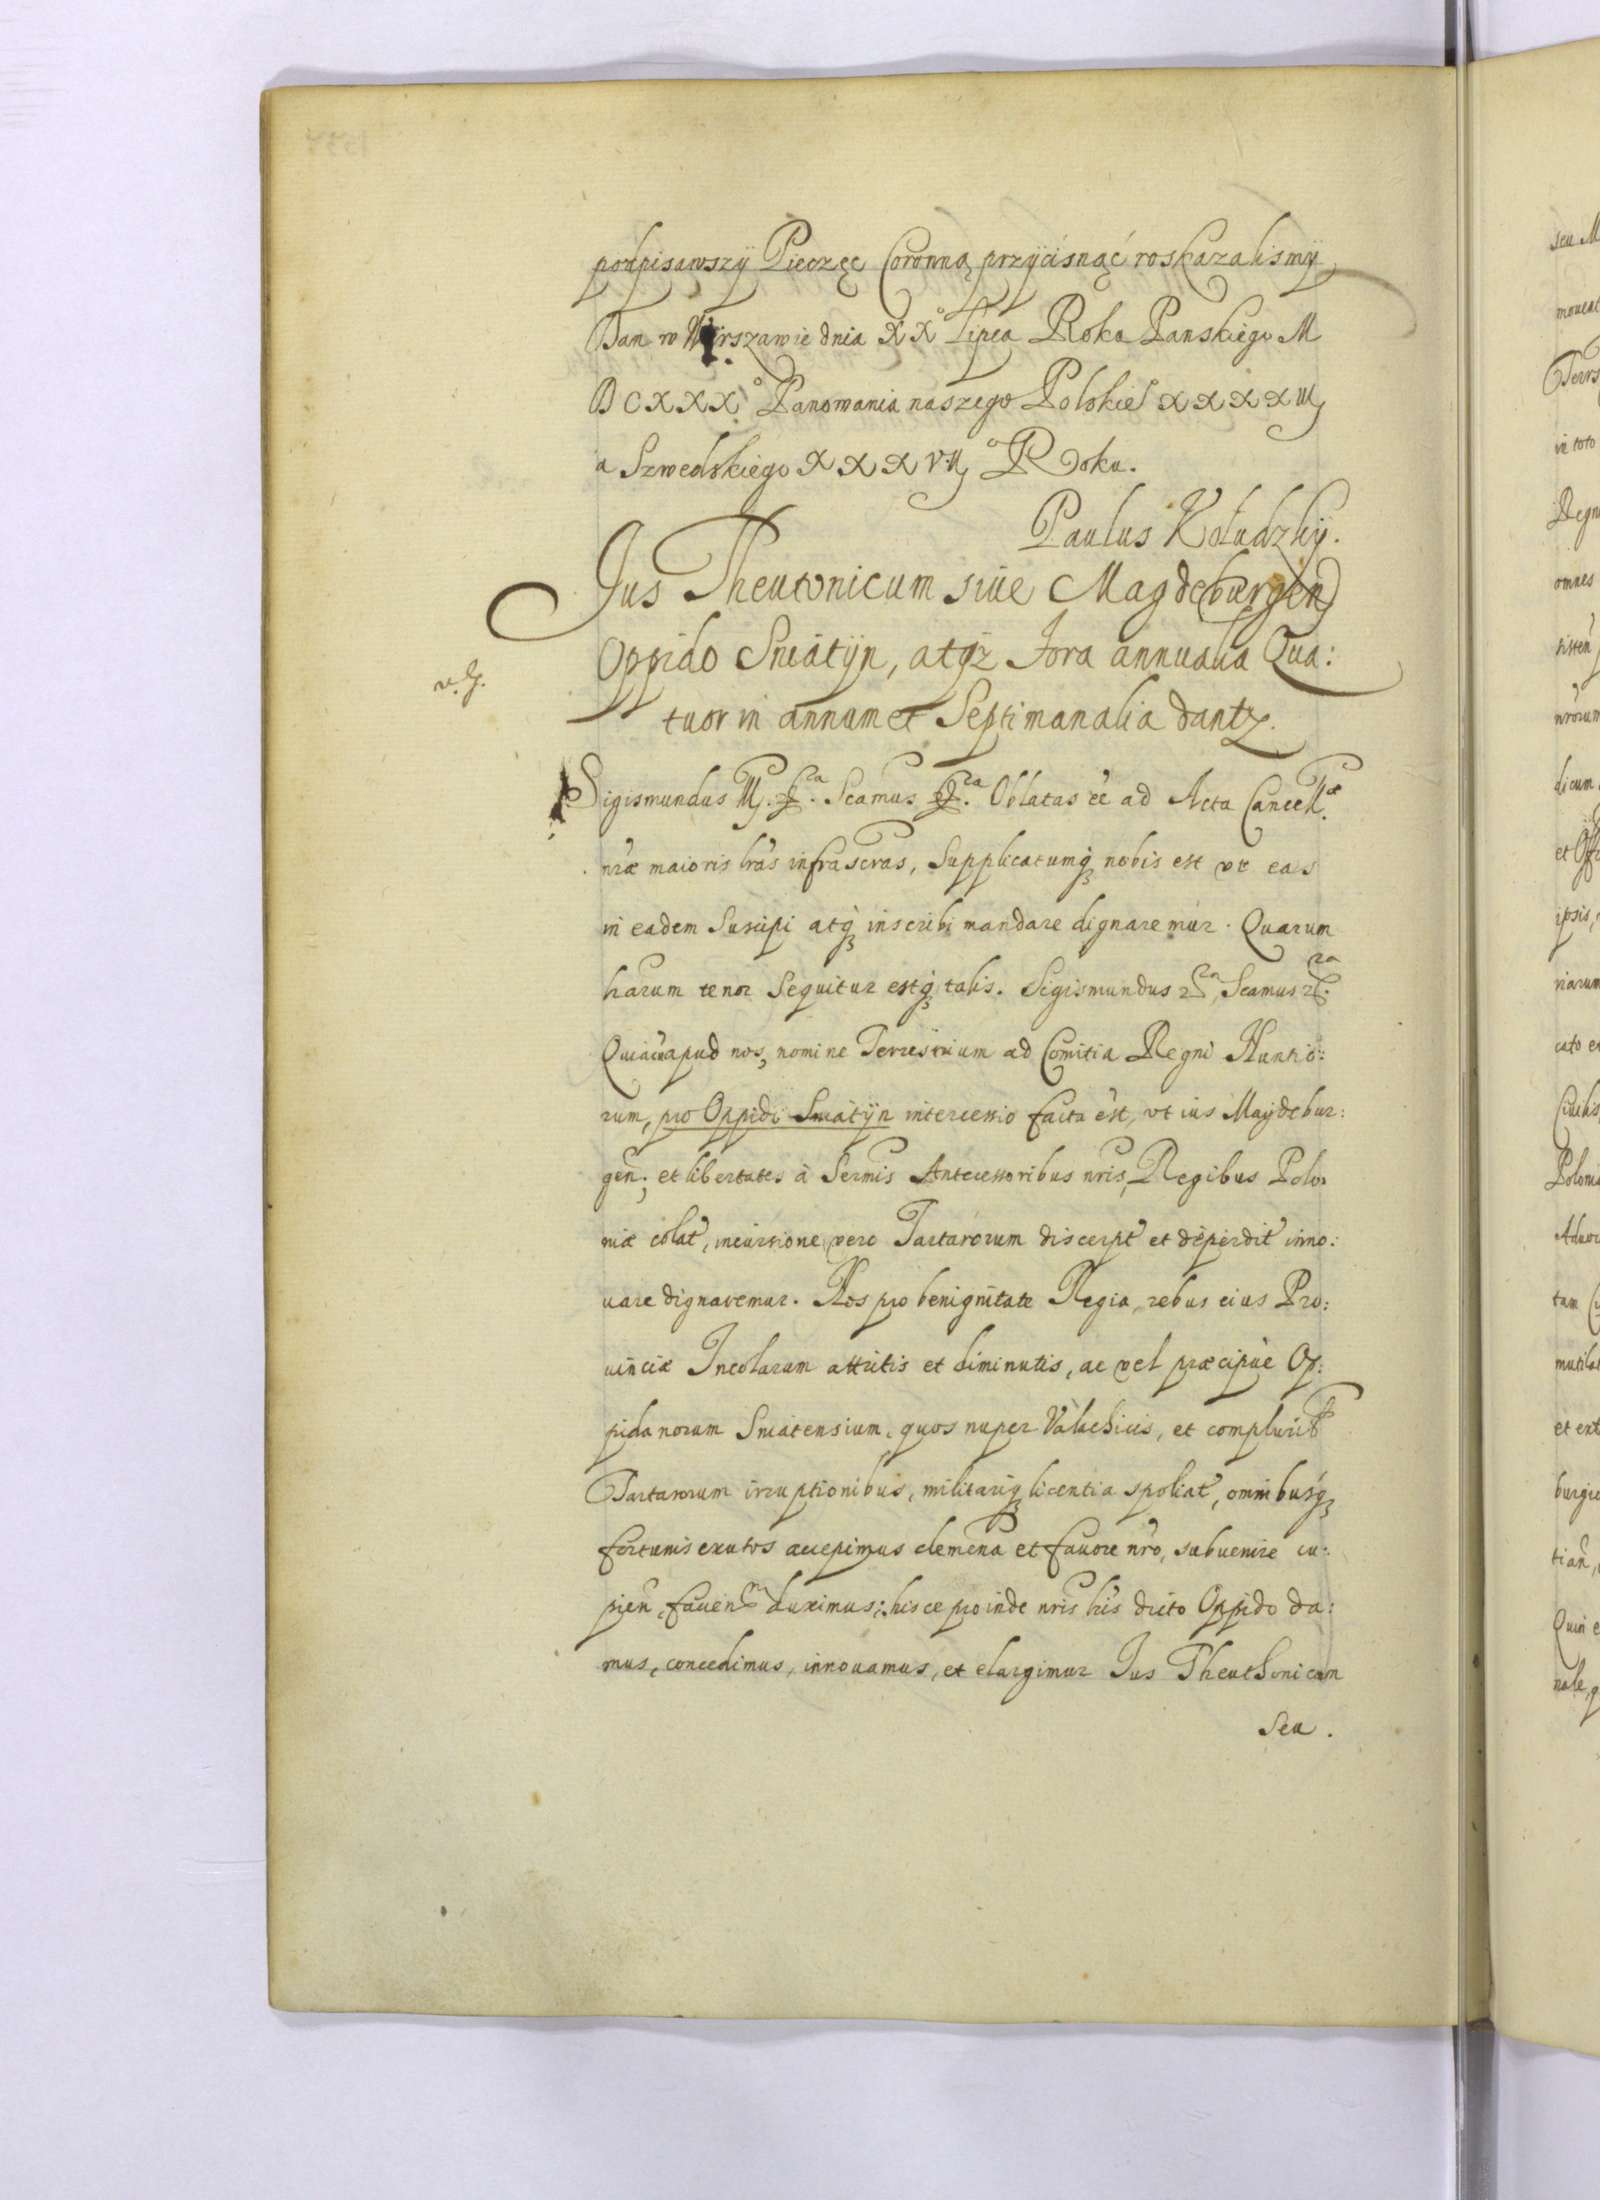 podpisawszy Pieczęc Coronną przycisnąć roskazalismy
Dan w Warszawie dnia XX° Lipca Roku Panskiego M
DCXXX.° Panowania naszego Polskie° XXXXIII
a Szwedskiego XXXVII° Roku.
Paulus Kołudzky.
Jus Theutonicum siue Magdeburgen
Oppido Sniatÿn, atqz Fora annualia Qua:
tuor in annum et Septimanalia dantz.
v. G.
Sigismundus III. Scamus Oblatas ēē ad Acta Cancellæ
nr̃æ maioris lr̃as infrascras, Supplicatumqz nobis est vt eas
in eadem Suscipi atqz inscribi mandare dignaremur. Quarum
harum tenor Sequitur estqz talis. Sigismundus Scamus
Quia apud nos, nomine Terrestrium ad Comitia Regni Nuntio:
rum, pro Oppidi Sniatÿn intercessio facta est, vt ius Maydebur:
gen; et libertates à Sermis Antecessoribus nr̃is, Regibus Polo:
niæ colat̃, incursione vero Tartarorum discerpt̃ et deperdit̃ inno:
uare dignaremur. Nos pro benignitate Regia, rebus eius Pro:
uinciæ Incolarum attritis et diminutis, ac vel præcipuè Op:
pidanorum Sniatensium, quos nuper Valachicis, et complurib9
Tartarorum irruptionibus, militariqz licentia spoliat̃, omnibusqz
fortunis exutos accepimus clemena et fauore nr̃o, subuenire cu:
pien, fauen duximus; hisce proinde nr̃is lr̃is dicto Oppido da:
mus, concedimus, innouamus, et elargimur Jus Theuthonicum
Seu.